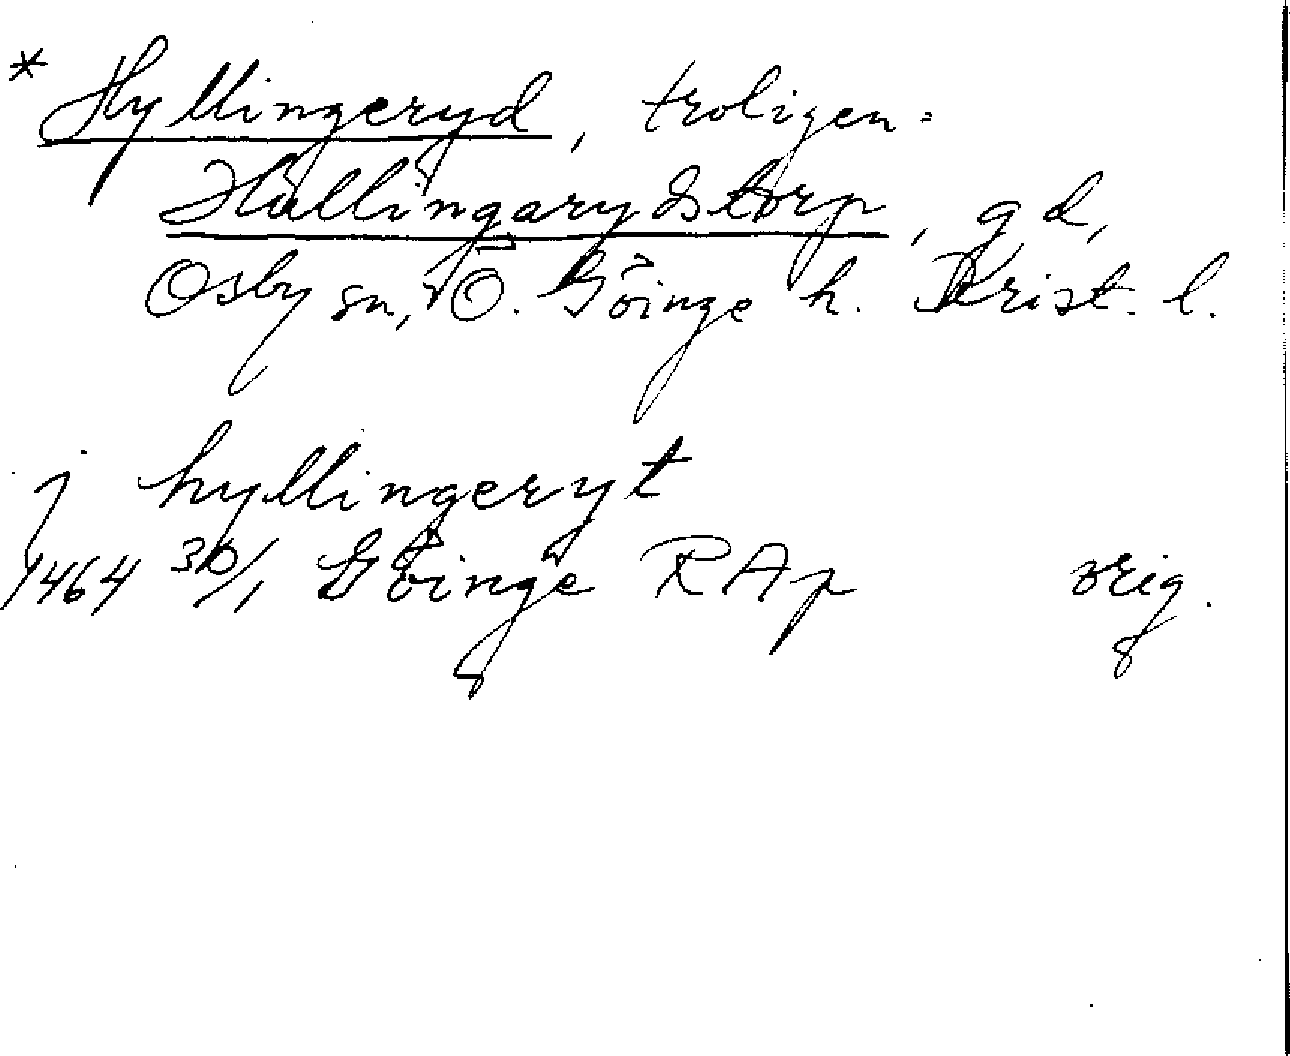 * Hyllingeryd, troligen =
Hullingarydstorp, gd,
Osby sn, Ö. Göinge h. Krist. l.
j hyllingeryt
1464 30/1 Göinge RAp orig.